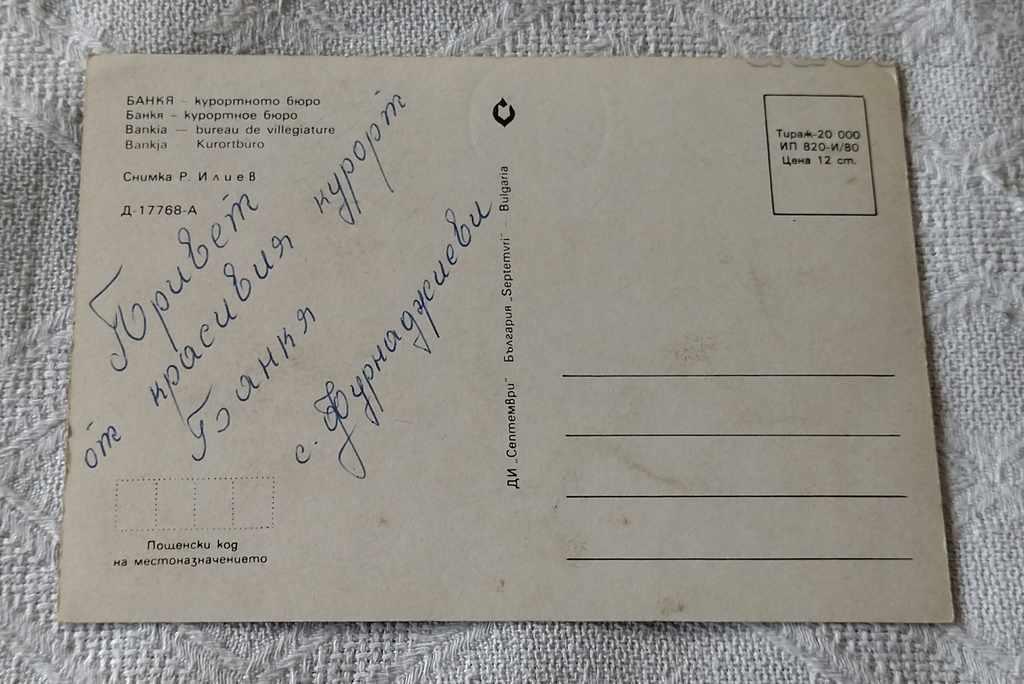 БАНКЯ – курортното бюро
Банкя – курортное бюро
Bankia — bureau de villegiature
Bankja Kurortburo
Снимка Р. Илиев
Д-17768-А
Привет
от красивия курорт
Банкя
с. Фурнаджиеви
Пощенски код
на местоназначението
ДИ „Септември" България „Septemvri" Bulgaria
Тираж-20 000
ИП 820-И/80
Цена 12 ст.